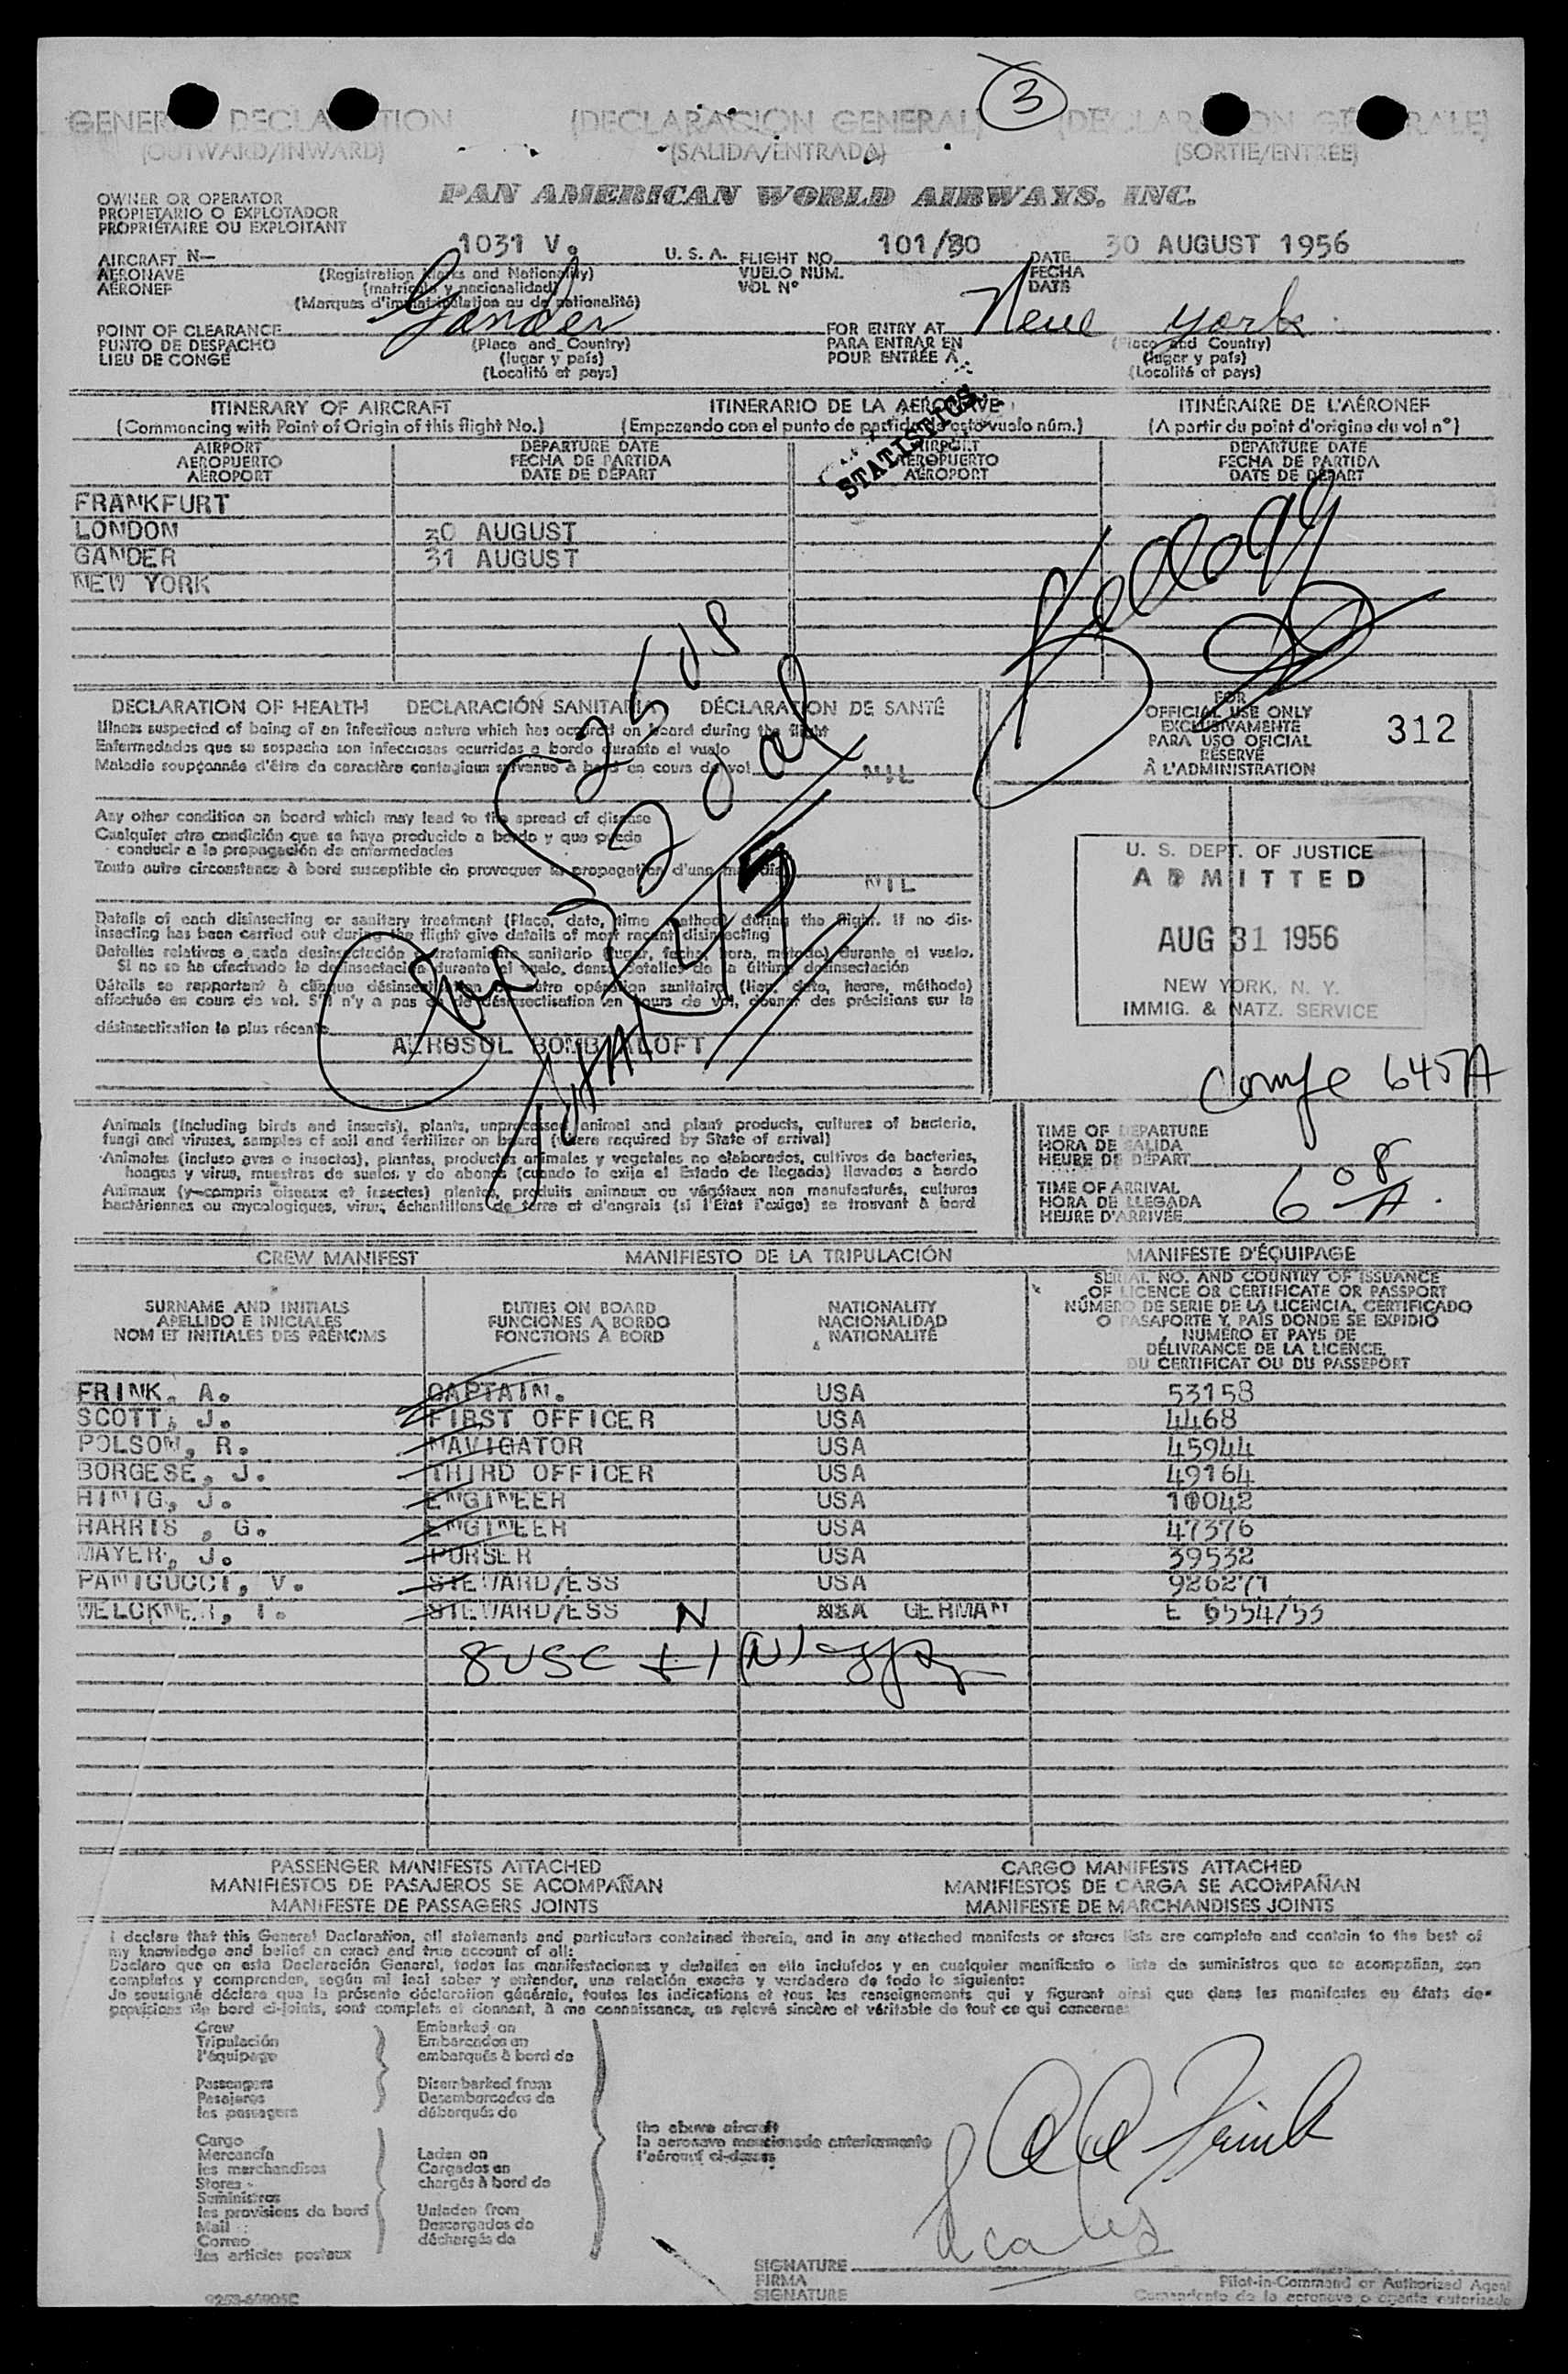 3
GENERAL DECLARATION (DECLARACIÓN GENERAL) (DÉCLARATION GÉNÉRALE)
(OUTWARD/INWARD) (SALIDA/ENTRADA) (SORTIE/ENTRÉE)
OWNER OR OPERATOR
PROPIETARIO O EXPLOTADOR
PROPRIÉTAIRE OU EXPLOITANT
PAN AMERICAN WORLD AIRWAYS, INC.
AIRCRAFT N— 1031 V. U. S. A. FLIGHT NO. 101/30 DATE 30 AUGUST 1956
AERONAVE (Registration Marks and Nationality) VUELO NÚM. FECHA
AÉRONEF (matrícula y nacionalidad) VOL Nº DATE
(Marques d'immatriculation ou de nationalité)
POINT OF CLEARANCE Gander FOR ENTRY AT New York
PUNTO DE DESPACHO (Place and Country) PARA ENTRAR EN (Place and Country)
LIEU DE CONGÉ (lugar y país) POUR ENTRÉE À (lugar y país)
(Localité et pays) (Localité et pays)
STATISTICS
ITINERARY OF AIRCRAFT ITINERARIO DE LA AERONAVE ITINÉRAIRE DE L'AÉRONEF
(Commencing with Point of Origin of this flight No.) (Empezando con el punto de partida de este vuelo núm.) (A partir du point d'origine du vol nº)
AIRPORT DEPARTURE DATE AIRPORT DEPARTURE DATE
AEROPUERTO FECHA DE PARTIDA AEROPUERTO FECHA DE PARTIDA
AÉROPORT DATE DE DÉPART AÉROPORT DATE DE DÉPART
FRANKFURT
LONDON 30 AUGUST
GANDER 31 AUGUST
NEW YORK
DECLARATION OF HEALTH DECLARACIÓN SANITARIA DÉCLARATION DE SANTÉ
Illness suspected of being of an infectious nature which has occurred on board during the flight
Enfermedades que se sospecha son infecciosas ocurridas a bordo durante el vuelo
Maladie soupçonnée d'être de caractère contagieux survenue à bord en cours de vol NIL
Any other condition on board which may lead to the spread of disease
Cualquier otra condición que se haya producido a bordo y que pueda
conducir a la propagación de enfermedades
Toute autre circonstance à bord susceptible de provoquer la propagation d'une maladie NIL
Details of each disinsecting or sanitary treatment (Place, date, time method) during the flight. If no disinsecting has been carried out during the flight give details of most recent disinsecting
Detalles relativos a cada desinsectación o tratamiento sanitario (lugar, fecha, hora, método) durante el vuelo.
Si no se ha efectuado la desinsectación durante el vuelo, dense detalles de la última desinsectación
Détails se rapportant à chaque désinsectisation ou autre opération sanitaire (lieu, date, heure, méthode)
effectuée en cours de vol. S'il n'y a pas eu de désinsectisation en cours de vol, donner des précisions sur la
désinsectisation la plus récente
AEROSOL BOMB ALOFT
FOR
OFFICIAL USE ONLY
EXCLUSIVAMENTE
PARA USO OFICIAL
RÉSERVÉ
À L'ADMINISTRATION
312
U. S. DEPT. OF JUSTICE
ADMITTED
AUG 31 1956
NEW YORK, N. Y.
IMMIG. & NATZ. SERVICE
645A
Animals (including birds and insects), plants, unprocessed animal and plant products, cultures of bacteria,
fungi and viruses, samples of soil and fertilizer on board (where required by State of arrival)
Animales (incluso aves e insectos), plantas, productos animales y vegetales no elaborados, cultivos de bacterias,
hongos y virus, muestras de suelos y de abonos (cuando lo exija el Estado de llegada) llevados a bordo
Animaux (y-compris oiseaux et insectes) plantes, produits animaux ou végétaux non manufacturés, cultures
bactériennes ou mycologiques, virus, échantillons de terre et d'engrais (si l'État l'exige) se trouvant à bord
TIME OF DEPARTURE
HORA DE SALIDA
HEURE DE DÉPART
TIME OF ARRIVAL
HORA DE LLEGADA
HEURE D'ARRIVÉE 6 08 A
CREW MANIFEST MANIFIESTO DE LA TRIPULACIÓN MANIFESTE D'ÉQUIPAGE
SURNAME AND INITIALS
APELLIDO E INICIALES
NOM ET INITIALES DES PRÉNOMS
DUTIES ON BOARD
FUNCIONES A BORDO
FONCTIONS À BORD
NATIONALITY
NACIONALIDAD
NATIONALITÉ
SERIAL NO. AND COUNTRY OF ISSUANCE
OF LICENCE OR CERTIFICATE OR PASSPORT
NÚMERO DE SERIE DE LA LICENCIA, CERTIFICADO
O PASAPORTE Y PAÍS DONDE SE EXPIDIÓ
NUMÉRO ET PAYS DE
DÉLIVRANCE DE LA LICENCE,
DU CERTIFICAT OU DU PASSEPORT
FRINK, A. CAPTAIN. USA 53158
SCOTT, J. FIRST OFFICER USA 4468
POLSON, R. NAVIGATOR USA 45944
BORGESE, J. THIRD OFFICER USA 49164
HINIG, J. ENGINEER USA 10042
HARRIS , G. ENGINEER USA 47376
MAYER, J. PURSER USA 39532
PANIGUCCI, V. STEWARD/ESS USA 926271
WELCKNER, I. STEWARD/ESS N USA GERMAN E 6554/53
8 USC + 1 (N)
PASSENGER MANIFESTS ATTACHED CARGO MANIFESTS ATTACHED
MANIFIESTOS DE PASAJEROS SE ACOMPAÑAN MANIFIESTOS DE CARGA SE ACOMPAÑAN
MANIFESTE DE PASSAGERS JOINTS MANIFESTE DE MARCHANDISES JOINTS
I declare that this General Declaration, all statements and particulars contained therein, and in any attached manifests or stores lists are complete and contain to the best of
my knowledge and belief an exact and true account of all:
Declaro que en esta Declaración General, todas las manifestaciones y detalles en ella incluídos y en cualquier manifiesto o lista de suministros que se acompañan, son
completos y comprenden, según mi leal saber y entender, una relación exacta y verdadera de todo lo siguiente:
Je soussigné déclare que la présente déclaration générale, toutes les indications et tous les renseignements qui y figurent ainsi que dans les manifestes ou états de
provisions de bord ci-joints, sont complets et donnent, à ma connaissance, un relevé sincère et véritable de tout ce qui concerne:
Crew
Tripulación
l'équipage
Passengers
Pasajeros
les passagers
Embarked on
Embarcados en
embarqués à bord de
Disembarked from
Desembarcados de
débarqués de
Cargo
Mercancía
les marchandises
Stores
Suministros
les provisions de bord
Mail
Correo
les articles postaux
Laden on
Cargados en
chargés à bord de
Unladen from
Descargados de
déchargés de
the above aircraft
la aeronave mencionada anteriormente
l'aéronef ci-dessus
SIGNATURE
FIRMA
SIGNATURE
Pilot-in-Command or Authorized Agent
Comandante de la aeronave o agente autorizado